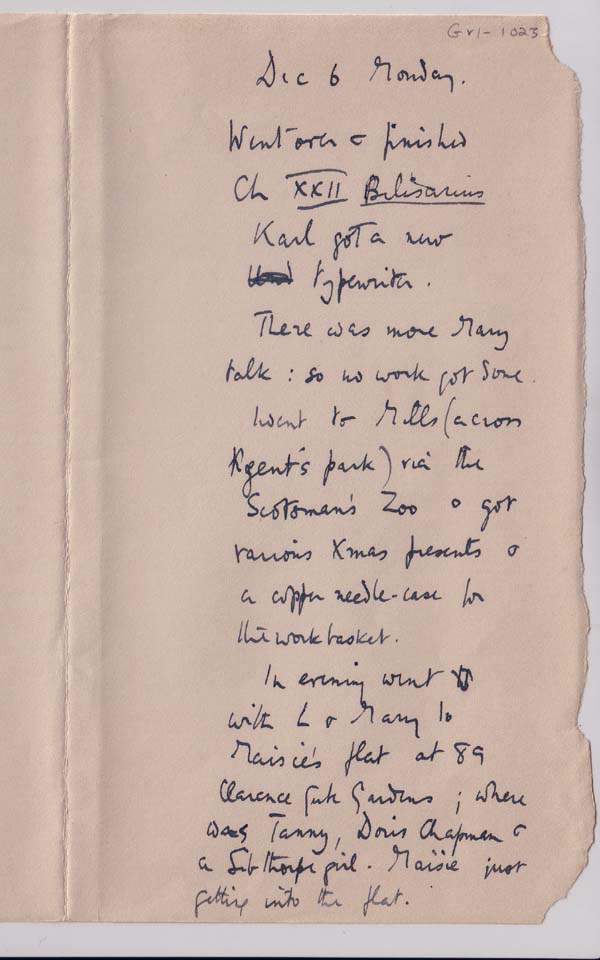 Gv1-1023
Dec 6 Monday.
Went over & finished
Ch XXII Belisarius
Karl got a new
typewriter.
There was more Mary
talk : so no work got done.
Went to Mells (across
Regent's park) via the
Scotsman's Zoo & got
various Xmas presents &
a copper needle-case for
the workbasket.
In evening went
with L & Mary to
Maisie's flat at 89
Clarence Gate Gardens ; where
was Tanny, Doris Chapman &
a Sibthorpe girl. Maisie just
getting into the flat.